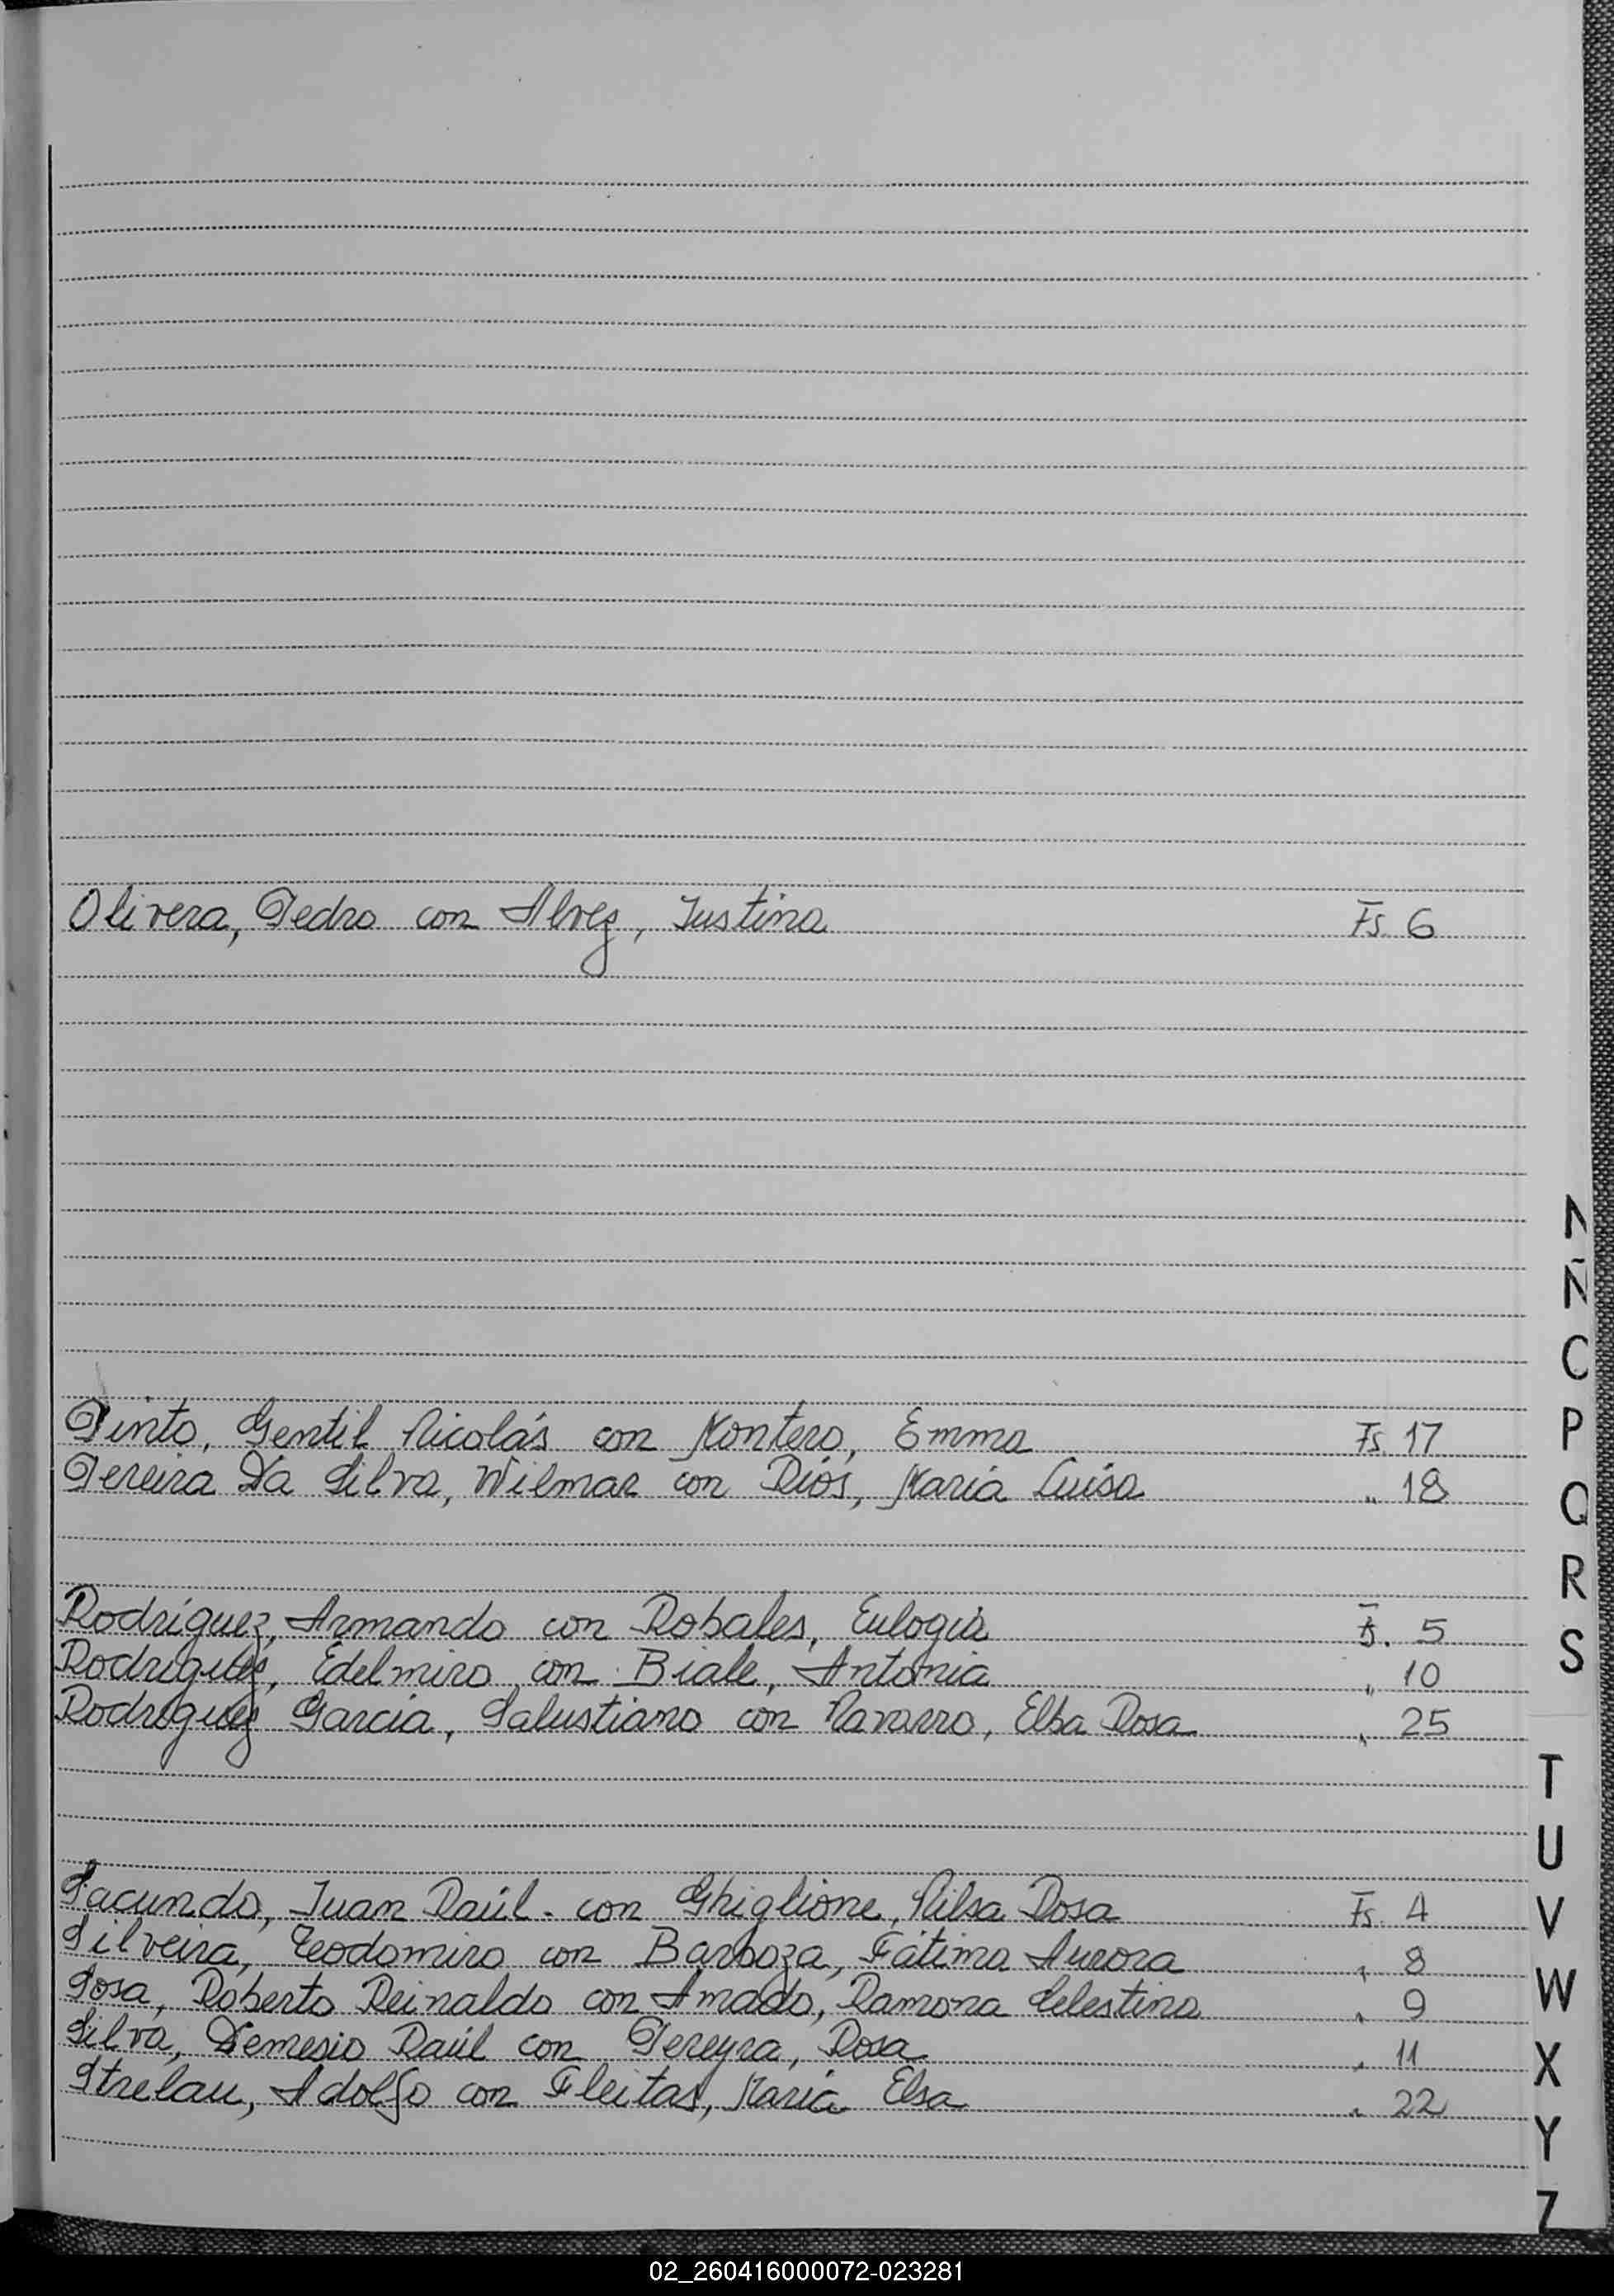 Olivera, Pedro con Alvez, Justina Fs. 6
N
Ñ
O
Pinto, Gentil Nicolás con Montero, Emma Fs. 17
P
Pereira Da Silva, Wilmar con Dios, María Luisa " 18
Q
R
Rodríguez, Armando con Robales, Eulogia Fs. 5
S
Rodríguez, Edelmiro con Biale, Antonia " 10
Rodríguez García, Salustiano con Navarro, Elba Rosa " 25
T
U
Sacundo, Juan Raúl - con Ghiglione, Nilsa Rosa Fs. 4
V
Silveira, Teodomiro con Barboza, Fátima Aurora " 8
W
Sosa, Roberto Reinaldo con Amado, Ramona Celestina " 9
Silva, Nemesio Raúl con Pereyra, Rosa " 11
X
Strelau, Adolfo con Fleitas, María Elsa " 22
Y
Z
02_260416000072-023281